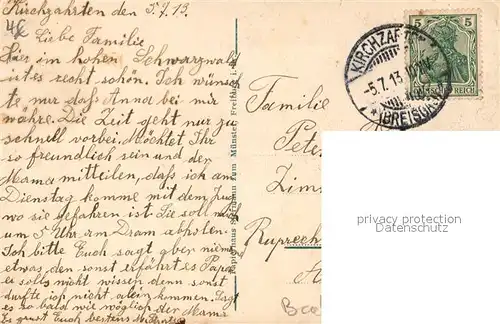 Kirchzahrten den 5.7.13.
Liebe Familie
Hier im hohen Schwarzwald
ist es recht schön. Ich wünsch
te nur daß Anna bei mir
währe. Die Zeit geht nur zu
schnell vorbei. Möchtet Ihr
so freundlich sein und der
Mama mitteilen, daß ich am
Dienstag komme mit dem Zug
wo sie gefahren ist. Sie soll mich
um 5 Uhr am Dram abholen.
Ich bitte Euch sagt aber niemand
etwas, den sonst erfährt es Papa
er solls nicht wissen denn sonst
durfte ich nicht allein kommen. Sagt
es so bald wie möglich der Mama
Es grüst Euch bestens
Familie
Pete
Zim
Ruprech
KIRCHZAR
-5.7.13
(BREISGAU)
5
privacy protection
Datenschutz